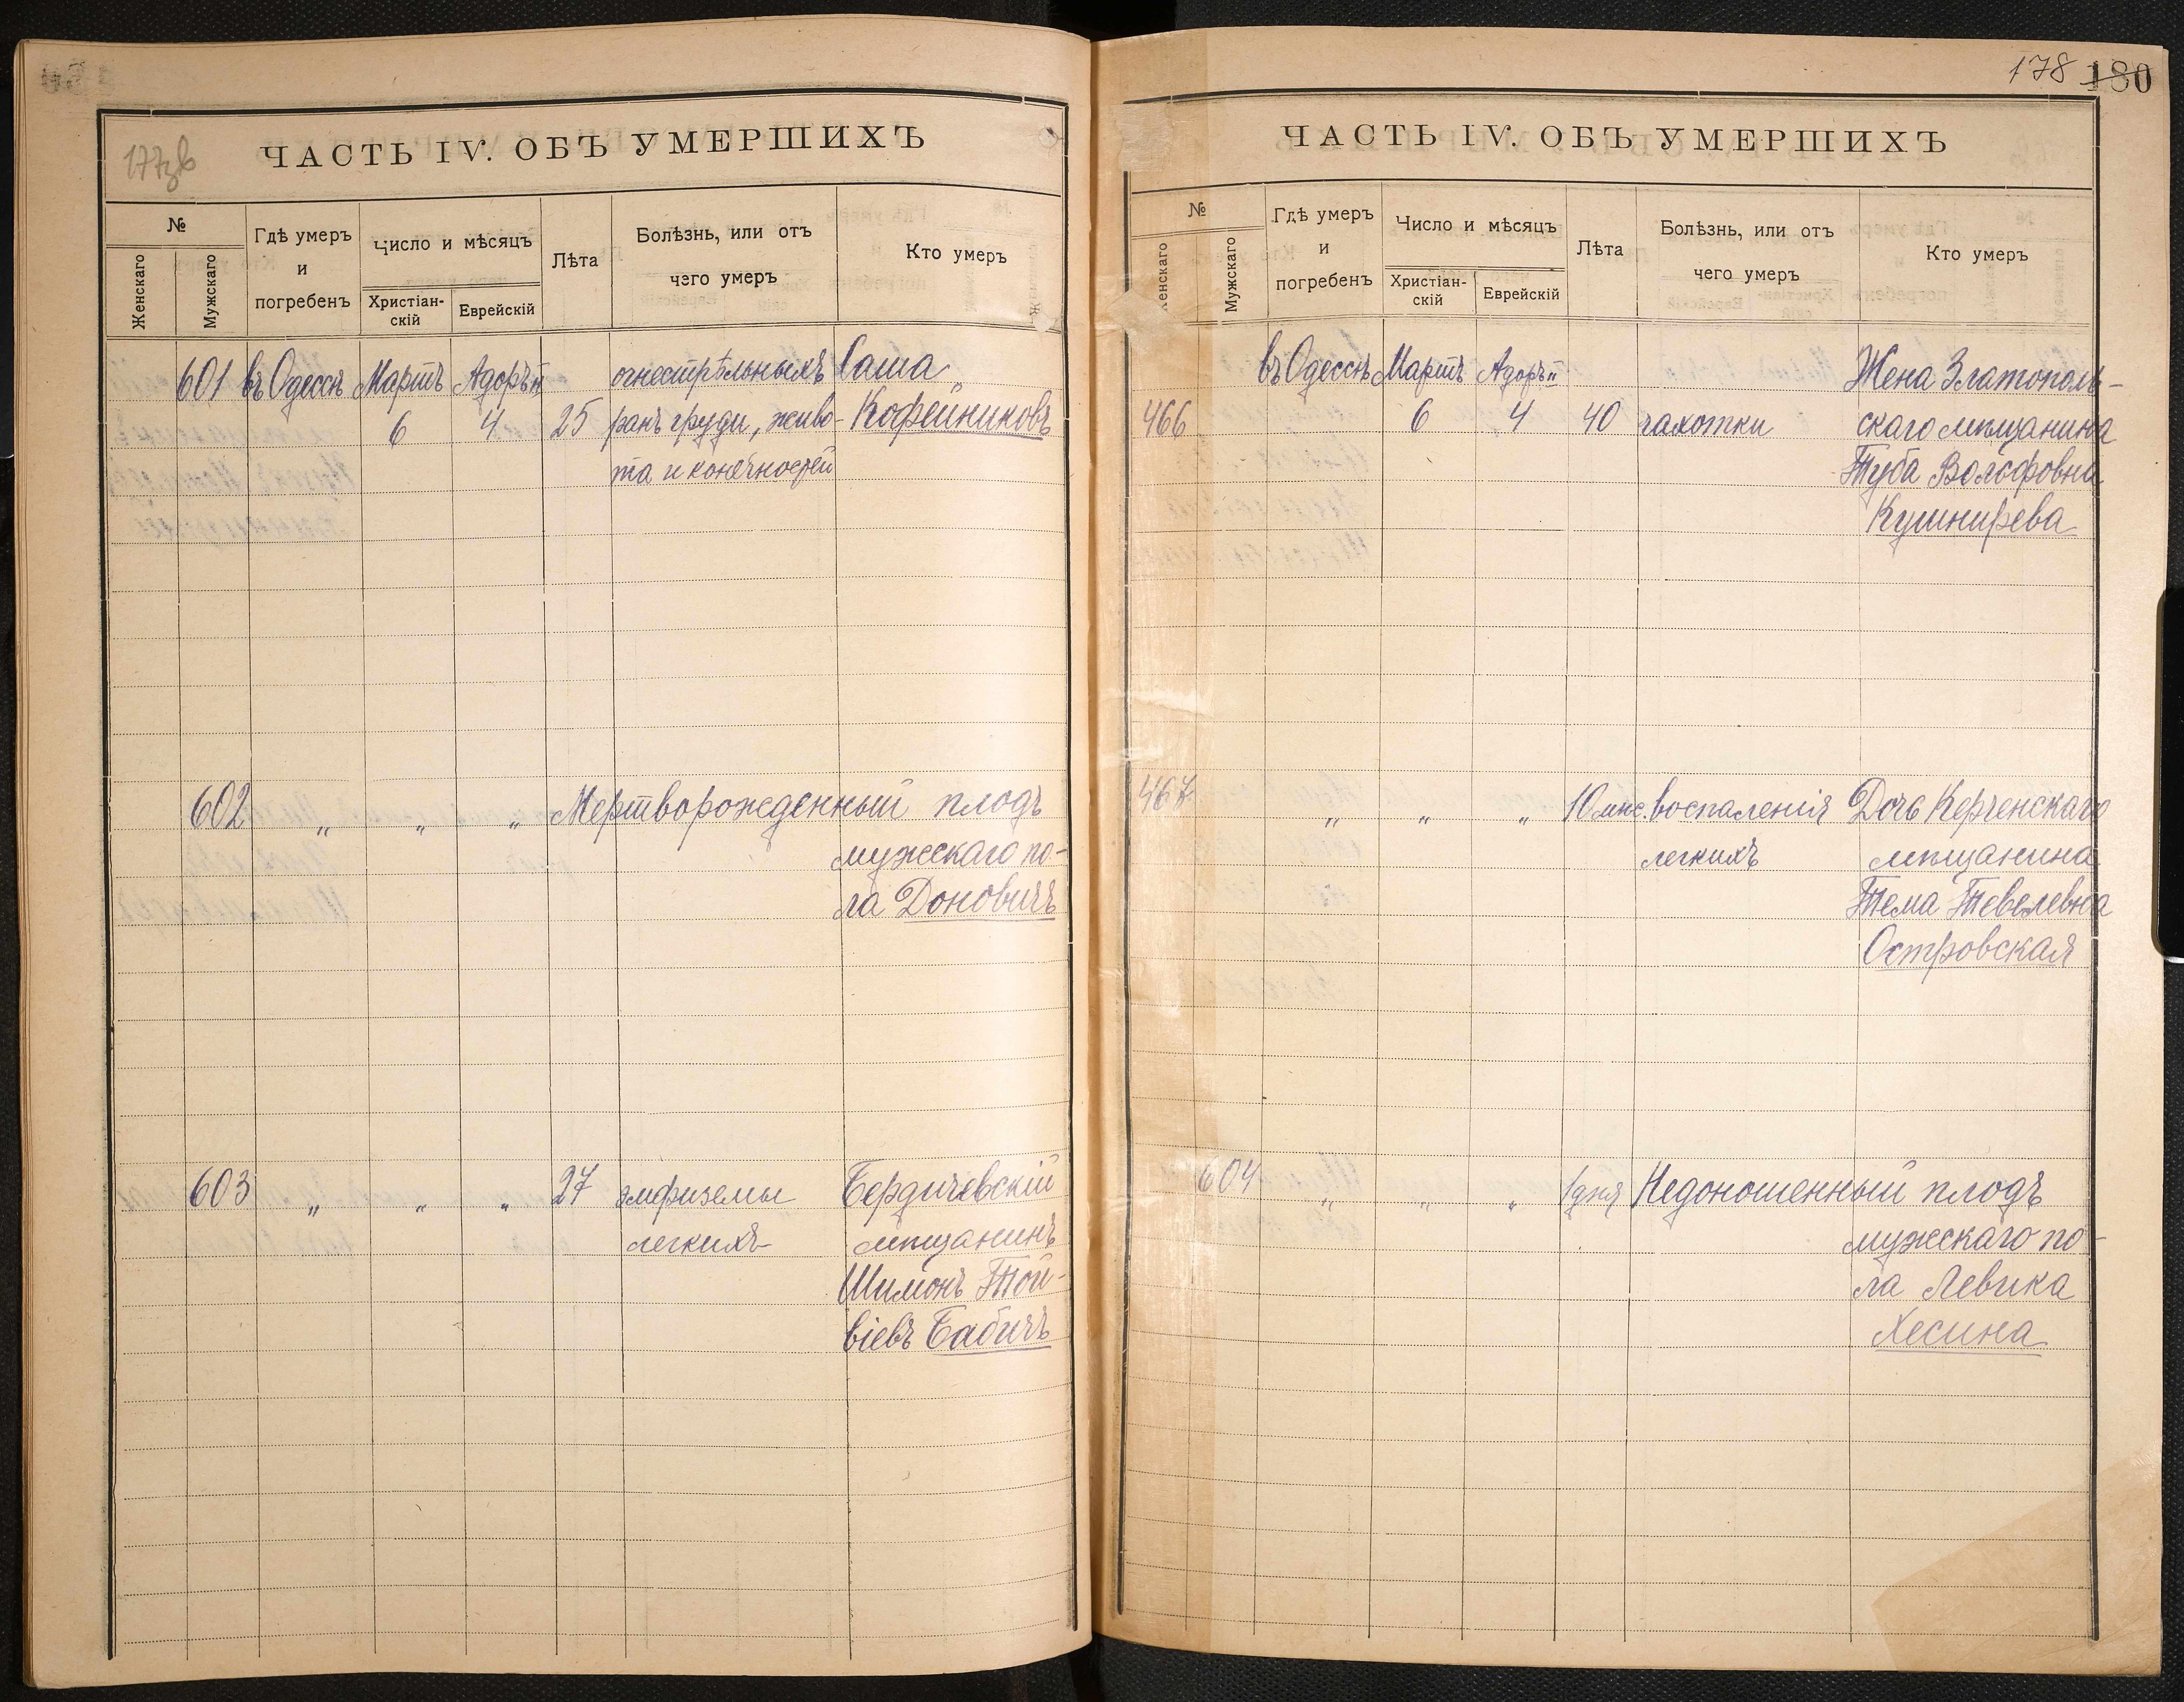 177зв
ЧАСТЬ IV. ОБЪ УМЕРШИХЪ
№
Женскаго
Мужскаго
Гдѣ умеръ
и
погребенъ
Число и мѣсяцъ
Христіан-
скій
Еврейскій
Лѣта
Болѣзнь, или отъ
чего умеръ
Кто умеръ
601 въ Одессѣ Мартъ Адоръ II огнестрѣльныхъ Саша
6 4 25 ранъ груди, живо- Кофейниковъ
та и конечностей
602 " " " Мертворожденный плодъ
мужескаго по-
ла Доновичъ
603 " " " 27 эмфиземы Бердичевскій
легкихъ мѣщанинъ
Шимонъ Той-
віевъ Бабичъ
178 180
ЧАСТЬ IV. ОБЪ УМЕРШИХЪ
№
Женскаго
Мужскаго
Гдѣ умеръ
и
погребенъ
Число и мѣсяцъ
Христіан-
скій
Еврейскій
Лѣта
Болѣзнь, или отъ
чего умеръ
Кто умеръ
въ Одессѣ Мартъ Адоръ II Жена Златополь-
466 6 4 40 чахотки скаго мѣщанина
Туба Вольфовна
Кушнирева
467 " " " 10 мѣс. воспаленія Дочь Керченскаго
легкихъ мѣщанина
Тема Тевелевна
Островская
604 " " " 1 дня Недоношенный плодъ
мужескаго по-
ла Левика
Хесина